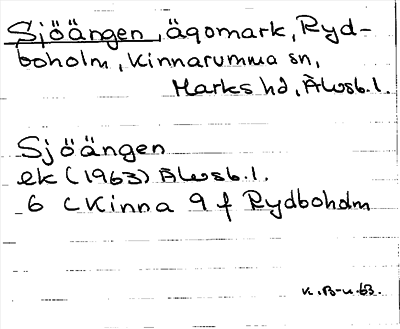 Sjöängen, ägomark, Ryd-
boholm, Kinnarumma sn,
Marks hd, Älvsb. l.
Sjöängen
ek (1963) Älvsb. l.
6 C Kinna 9 f Rydboholm
K. B-n 63.